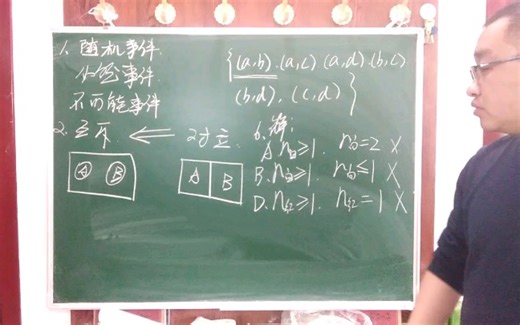 1. 随机事件
必然事件
不可能事件
2. 互斥 ⇐ 对立
A B
A B
{(a,b).(a,c)(a,d).(b,c)
(b,d),(c,d)}
6.解:
A n白≥1. n白=2 X
B. n白≥1. n白≤1 X
D. n红≥1. n红=1 X